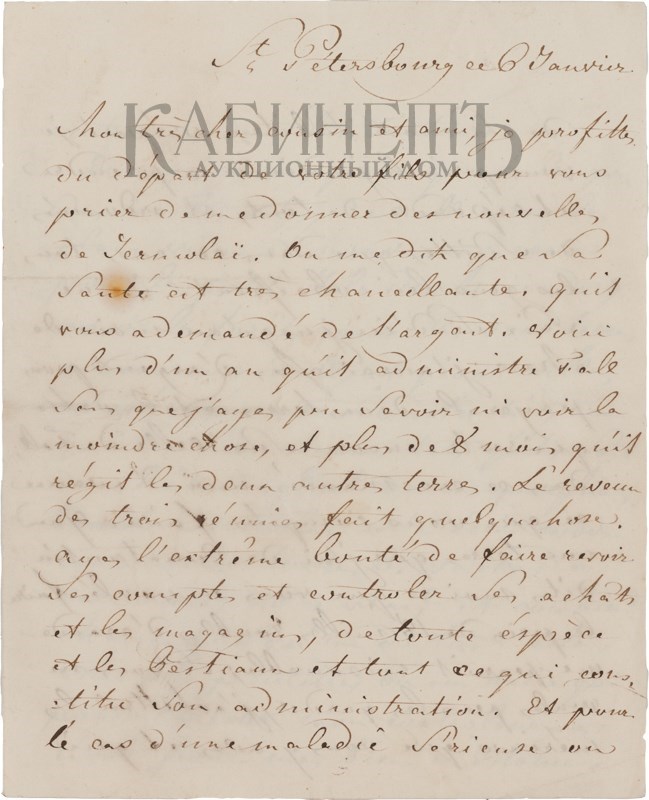 St Pétersbourg ce 6 Janvier
КАБИНЕТЪ
АУКЦИОННЫЙ ДОМ
Mon très cher cousin et ami, je profitte
du départ de votre fils pour vous
prier de me donner des nouvelles
de Jermolaï. On me dit que sa
santé est très chancellante, qu'il
vous a demandé de l'argent. Voici
plus d'un an qu'il administre Fall
sans que j'aye pu savoir ni voir la
moindre chose, et plus de 8 mois qu'il
régit les deux autres terres. Le revenu
des trois réunies fait quelquechose.
ayez l'extrême bonté de faire revoir
ses comptes et controler ses achâts
et les magasins, de toute éspèce
et les bestiaux et tout ce qui cons-
titu son administration. Et pour
le cas d'une maladie sérieuse ou